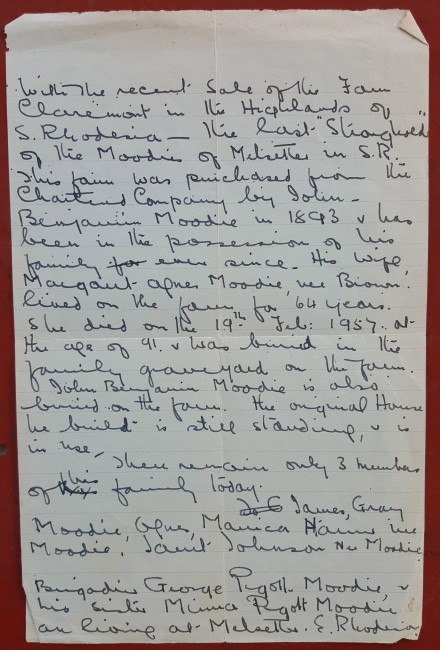 With the recent Sale of the Farm
Claremont in the Highlands of
S. Rhodesia — the last "Stronghold"
of the Moodies of Melsetter in S.R.
This farm was purchased from the
Chartered Company by John-
Benjamin Moodie in 1893 & has
been in the possession of his
family for ever since. His wife,
Margaret Agnes Moodie, nee Brown.
lived on the farm for 64 years.
She died on the 19th Feb: 1957. at
the age of 91. & was buried in the
family graveyard on the farm.
John Benjamin Moodie is also
buried on the farm. The original House
he build is still standing, & is
in use,
There remain only 3 members
of this family today.
James, Gray
Moodie, Agnes, Manica nee
Moodie, Janet Johnson Nee Moodie
Brigadier George Pigott Moodie, &
his sister Minnie Pigott Moodie
are living at Melsetter. E. Rhodesia